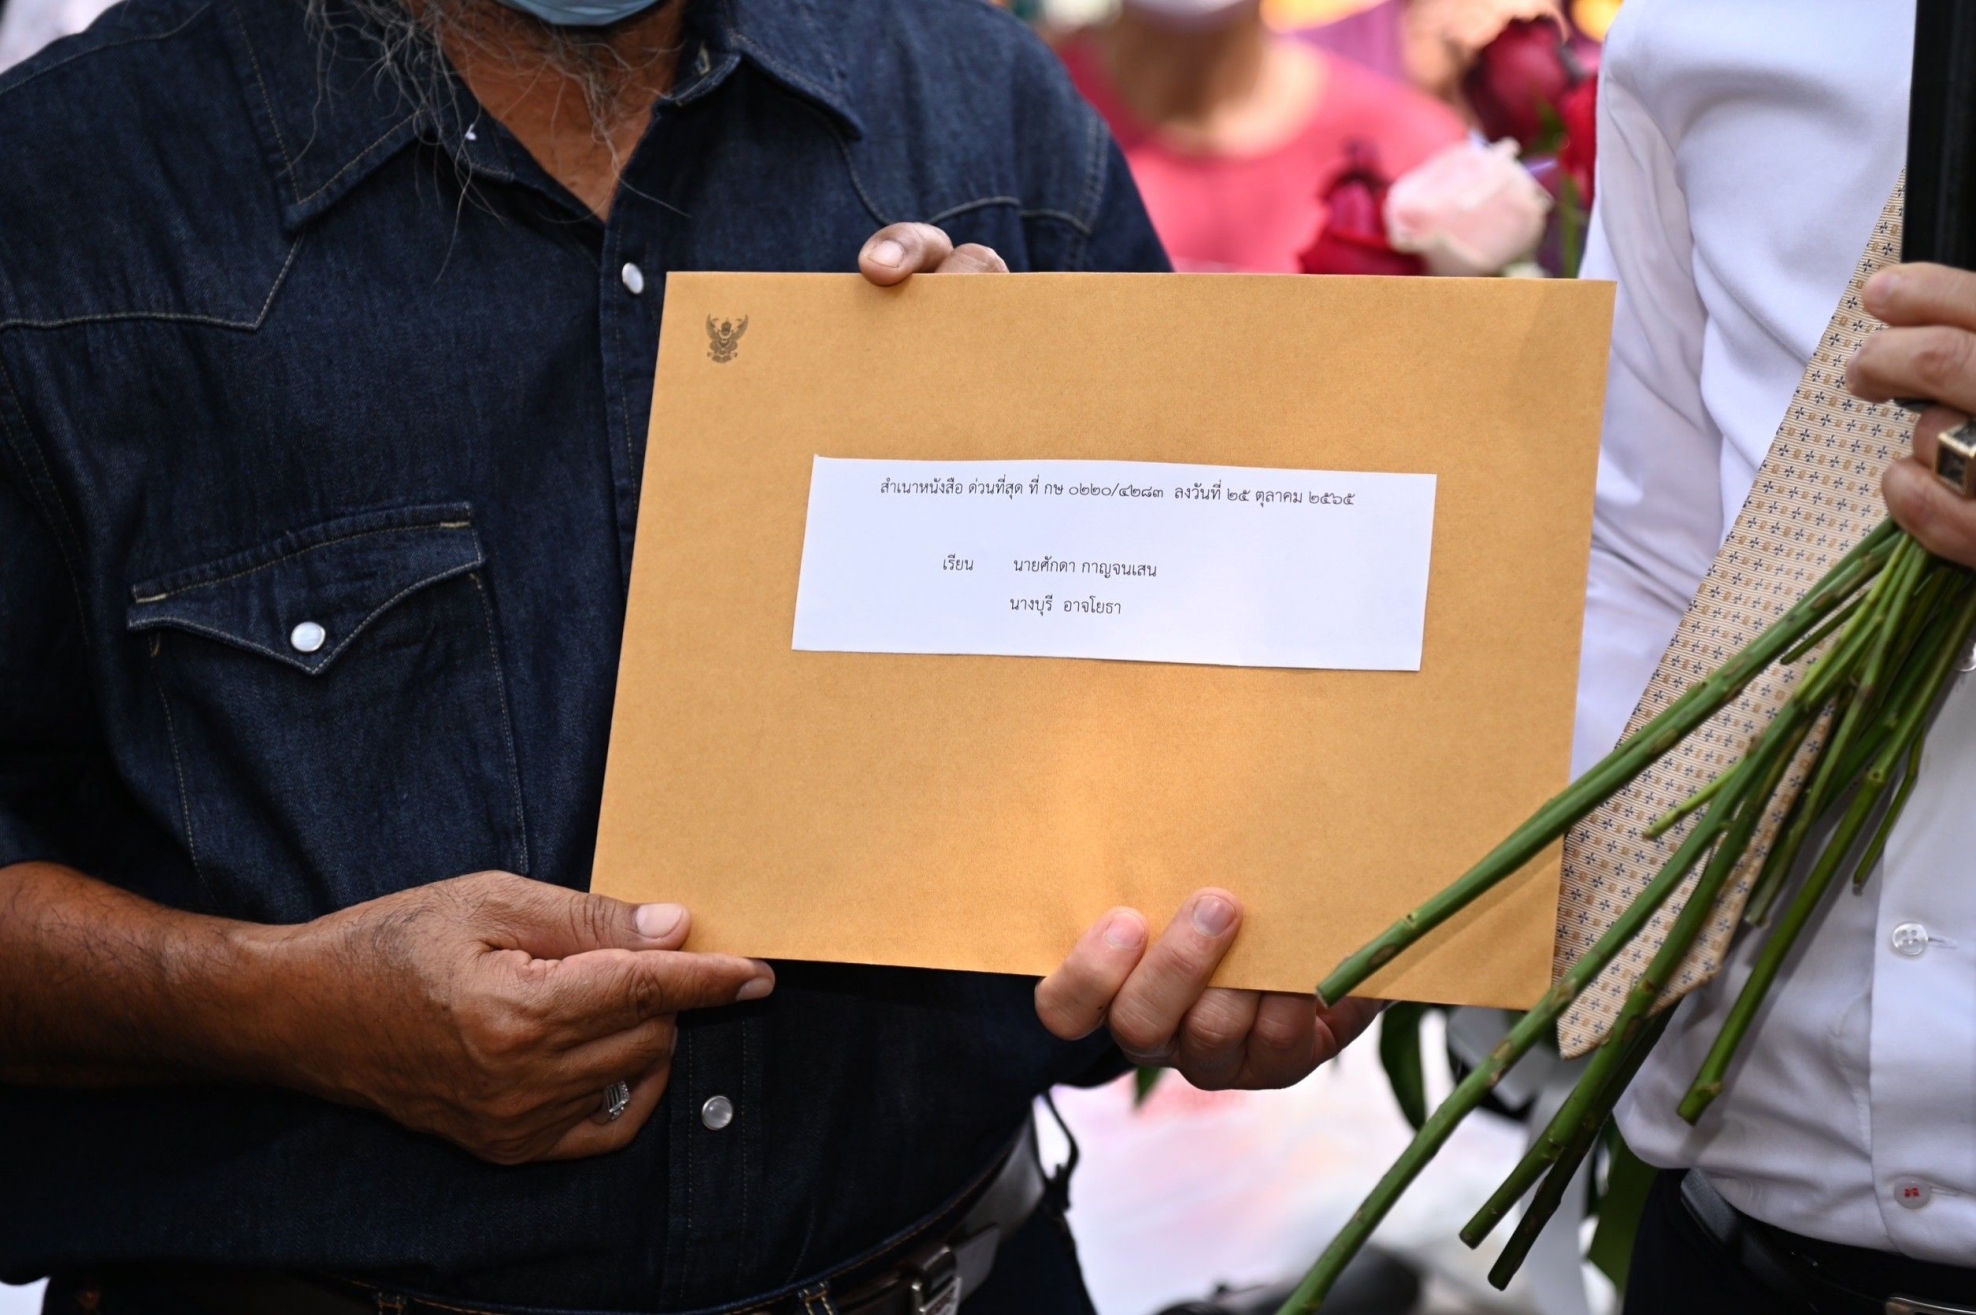 สำเนาหนังสือ ด่วนที่สุด ที่ กษ ๐๒๒๐/๔๒๘๓ ลงวันที่ ๒๕ ตุลาคม ๒๕๖๕
เรียน นายศักดา กาญจนเสน
นางบุรี อาจโยธา